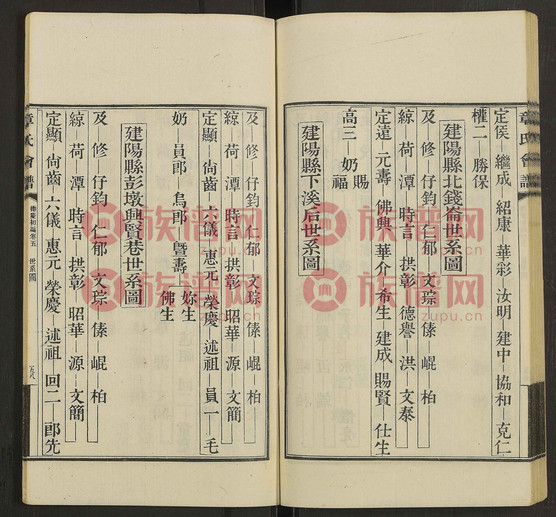 章氏會譜
定侯 繼成 紹康 華彩 汝明 建中 協和 克仁
權二 勝保
建陽縣北錢崙世系圖
及 修 仔鈞 仁郁 文琮 傣 崐 柏
綜 荷 潭 時言 拱彰 德譽 洪 文泰
定遠 元壽 佛興 華介 希生 建成 賜賢 仕生
高三 奶賜
福
建陽縣下溪后世系圖
及 修 仔鈞 仁郁 文琮 傣 崐 柏
綜 荷 潭 時言 拱彰 昭華 源 文簡
定顯 尙齒 六儀 惠元 榮慶 述祖 員一 毛
奶 員郎 鳥郎 暨壽上 妳生
佛生
建陽縣彭墩興賢巷世系圖
及 修 仔鈞 仁郁 文琮 傣 崐 柏
綜 荷 潭 時言 拱彰 昭華 源 文簡
定顯 尙齒 六儀 惠元 榮慶 述祖 回二 郎先
章氏會譜 初編卷五 世系圖
族谱网
族谱网
族谱网
族谱网